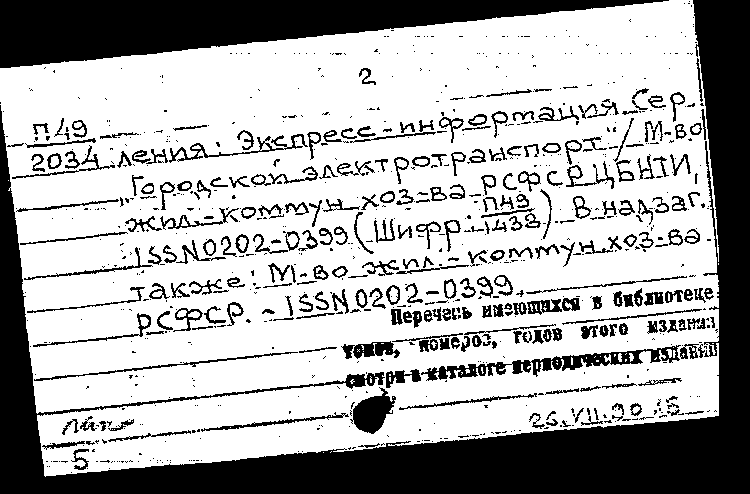 2
П49
2034 ления: Экспресс-информация. Сер.
„Городской электротранспорт"/ М-во
жил.-коммун. хоз-ва РСФСР. ЦБНТИ,
ISSN0202-0399 (Шифр: П49/1438) В надзаг.
также: М-во жил.-коммун. хоз-ва
РСФСР. - ISSN0202-0399.
Перечень имеющихся в библиотеке
томов, номеров, годов этого издания
смотри в каталоге периодических изданий
26.VII.90
5